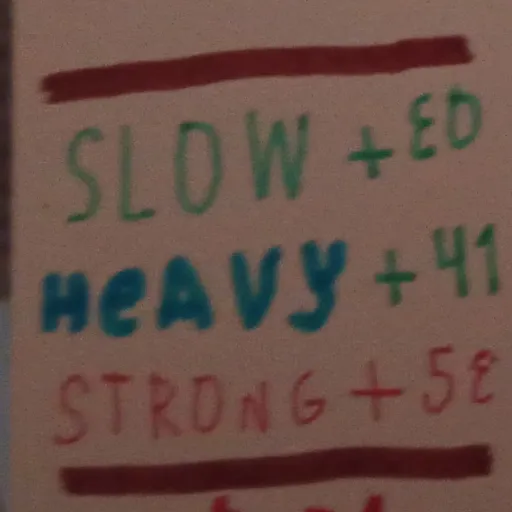 SLOW +
HeAVY + 41
STRONG +